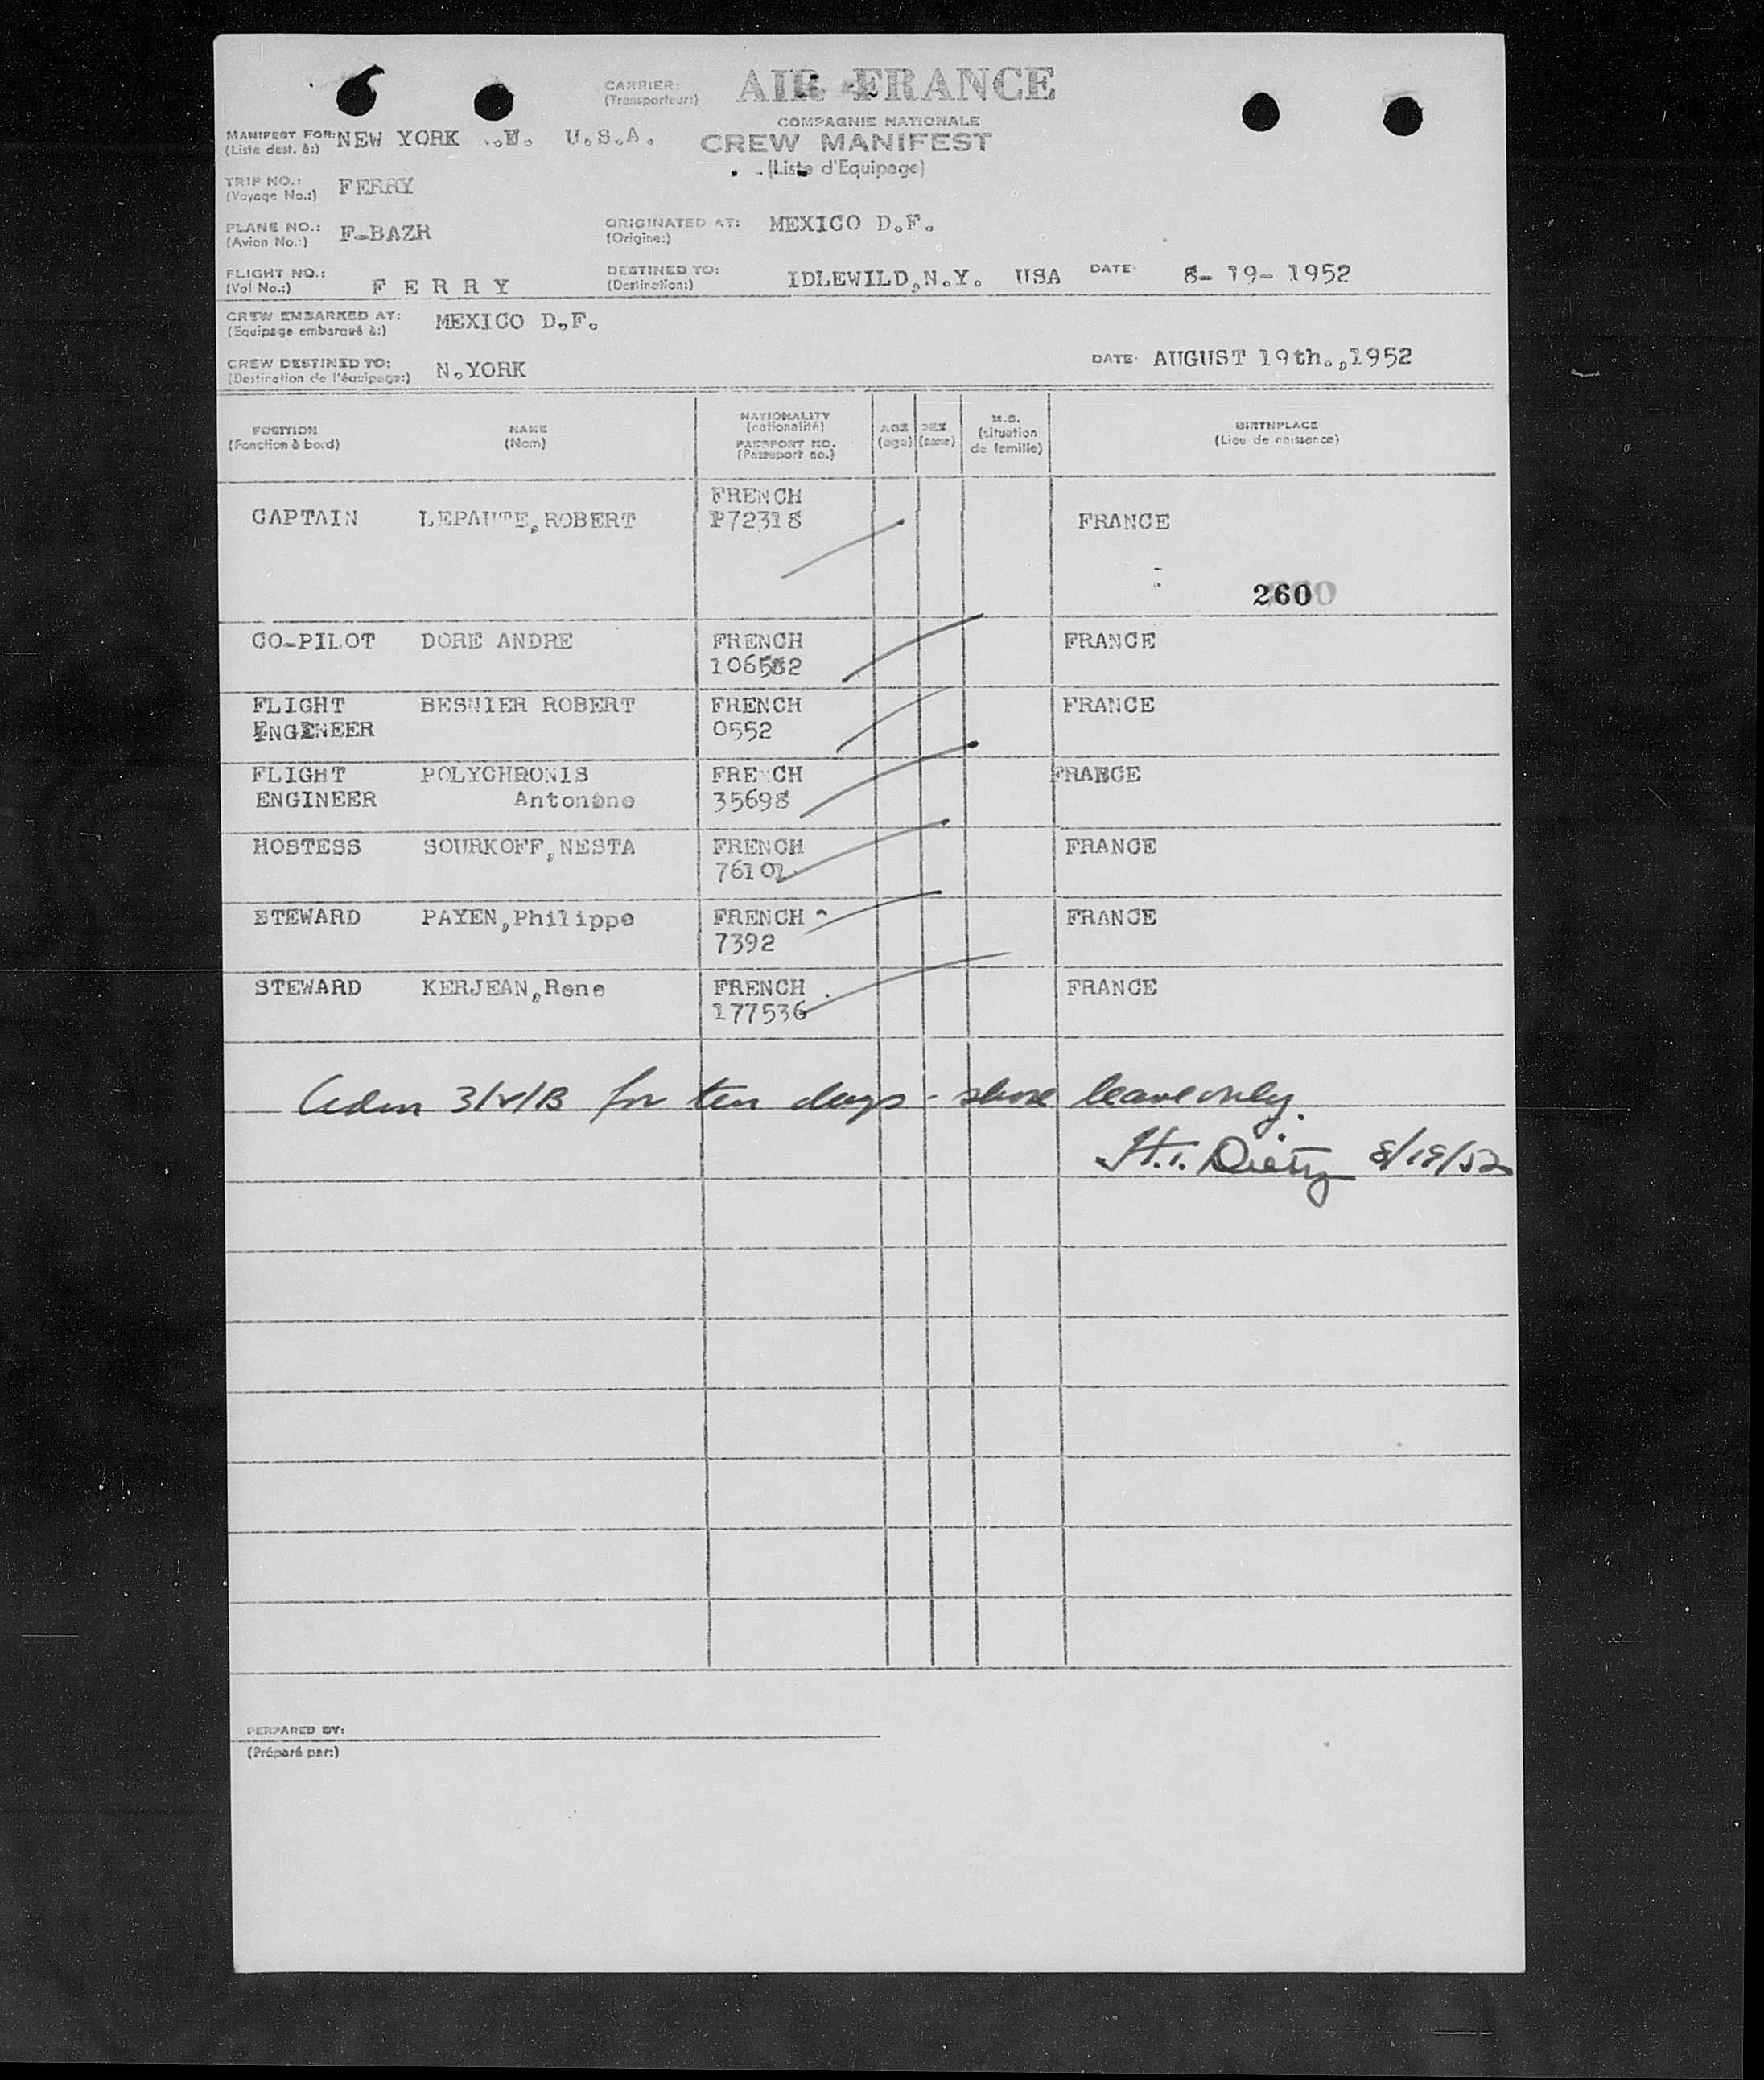 CARRIER: AIR FRANCE
(Transporteur:)
COMPAGNIE NATIONALE
MANIFEST FOR: NEW YORK U.S.A. CREW MANIFEST
(Liste dest. à:)
(Liste d'Equipage)
TRIP NO.: FERRY
(Voyage No.:)
PLANE NO.: F-BAZR ORIGINATED AT: MEXICO D.F.
(Avion No.:) (Origine:)
FLIGHT NO.: F E R R Y DESTINED TO: IDLEWILD,N.Y. USA DATE: 8- 19- 1952
(Vol No.:) (Destination:)
CREW EMBARKED AT: MEXICO D.F.
(Equipage embarqué à:)
CREW DESTINED TO: N.YORK DATE: AUGUST 19th.,1952
(Destination de l'équipage:)
POSITION NAME NATIONALITY AGE SEX M.S. BIRTHPLACE
(Fonction à bord) (Nom) (nationalité) (age) (sexe) (situation de famille) (Lieu de naissance)
PASSPORT NO.
(Passeport no.)
FRENCH
CAPTAIN LEPAUTE,ROBERT P72318 FRANCE
260
CO-PILOT DORE ANDRE FRENCH FRANCE
106582
FLIGHT BESNIER ROBERT FRENCH FRANCE
ENGENEER 0552
FLIGHT POLYCHRONIS FRENCH FRANCE
ENGINEER 35698
HOSTESS SOURKOFF,NESTA FRENCH FRANCE
STEWARD PAYEN,Philippe FRENCH FRANCE
7392
STEWARD KERJEAN,Rene FRENCH FRANCE
177536
for ten days - shore leave only.
8/19/52
PERPARED BY:
(Préparé par:)